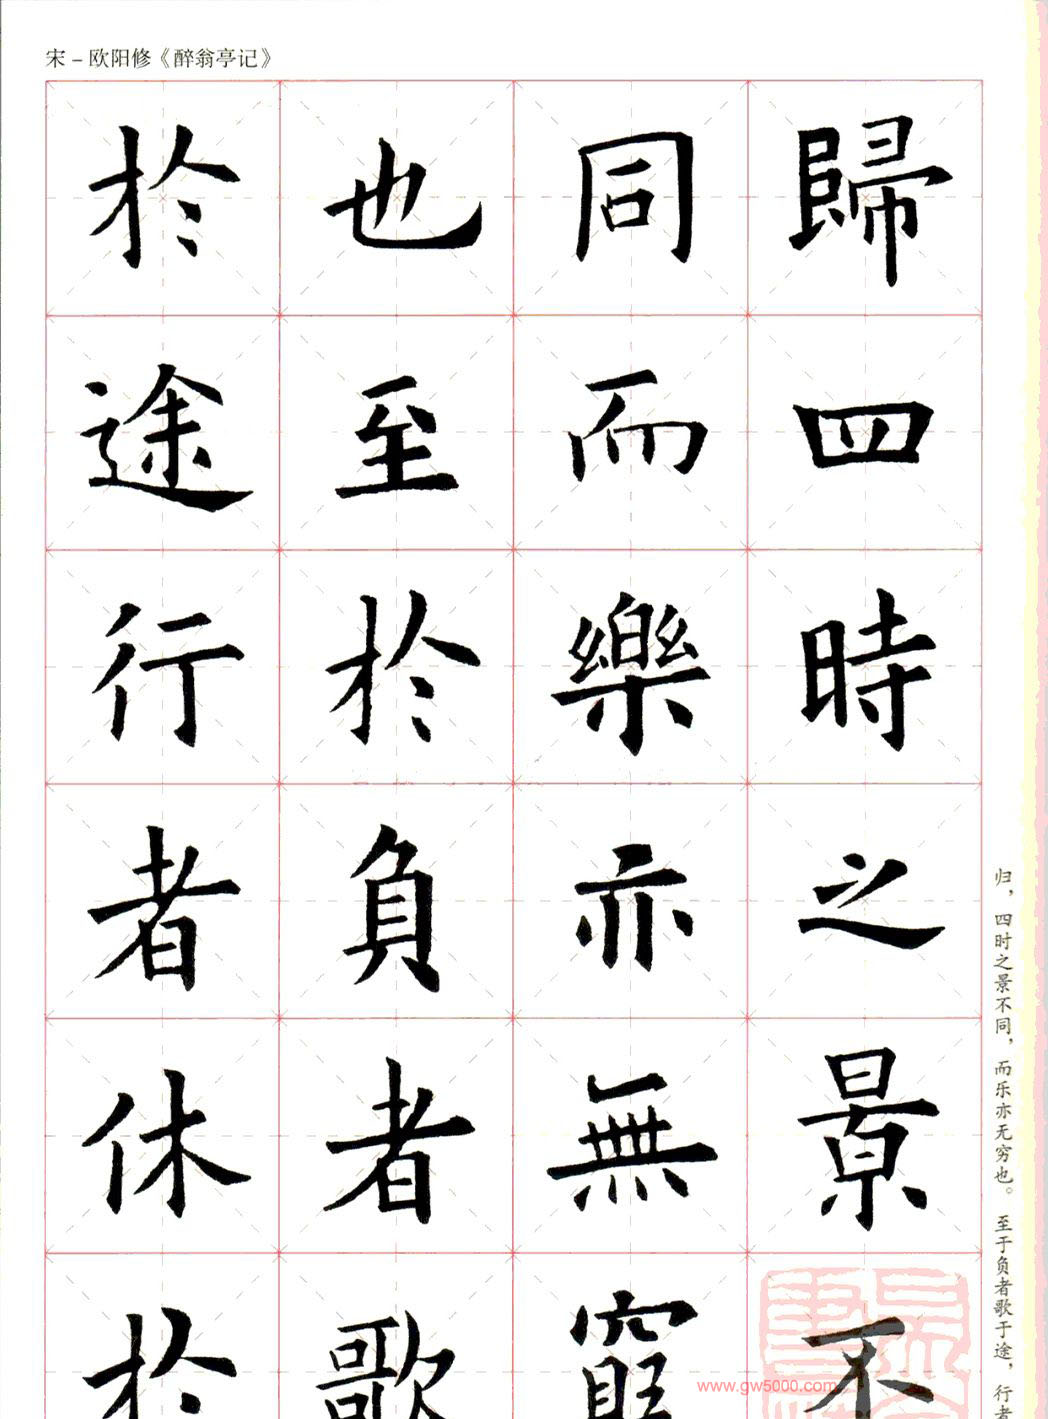 宋－欧阳修《醉翁亭记》
歸四時之景不
同而樂亦無窮
也至於負者歌
於途行者休於
归，四时之景不同，而乐亦无穷也。至于负者歌于途，行者
www.gw5000.com